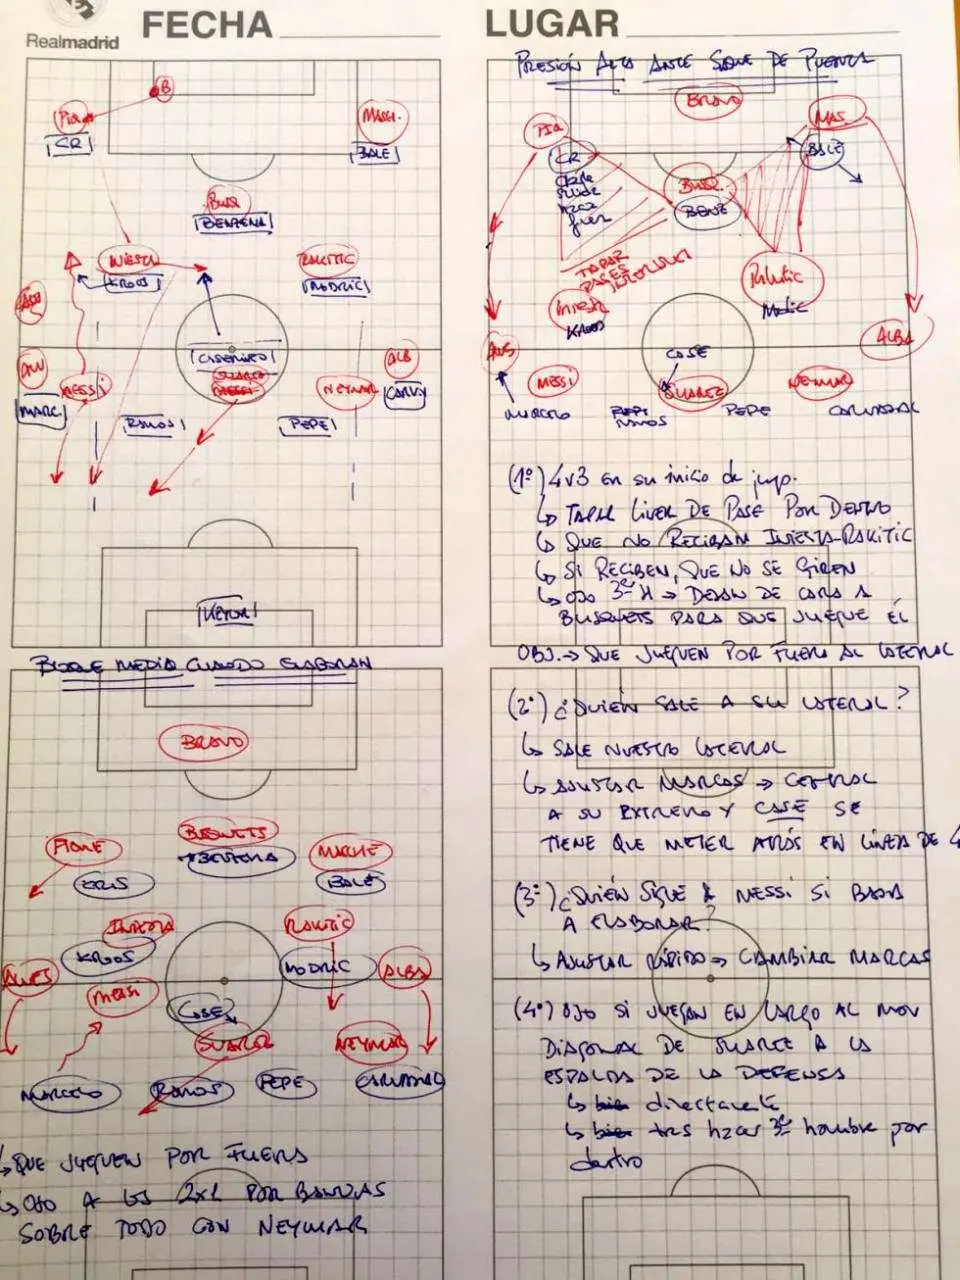 Realmadrid
FECHA
LUGAR
B
CR
MASCH.
BALE
BUSQ
BENZEMA
INIESTA
KROOS
RAKITIC
MODRIC
CASEMIRO
SUAREZ
MESSI
MESSI
NEYMAR
ALB
CARVJ
MARC
RAMOS
PEPE
KEYLOR
PRESIÓN ALTA ANTE SAQUE DE PUERTA
BRAVO
PIQ
MAS.
CR
BALE
BUSQ.
BENZ
TAPAR
PASES
INTERIORES
INIESTA
KROOS
RAKITIC
MODRIC
ALVS
ALBA
CASE
MESSI
SUAREZ
NEYMAR
MARCELO
RAMOS
PEPE
CARVAJAL
(1º) 4v3 en su inicio de juego.
↳ TAPAR LINEA DE PASE POR DENTRO
↳ QUE NO RECIBAN INIESTA-RAKITIC
↳ SI RECIBEN, QUE NO SE GIREN
↳ OJO 3er H → DEJAN DE CARA A
BUSQUETS PARA QUE JUEGUE ÉL
OBJ. → QUE JUEGUEN POR FUERA AL LATERAL
(2º) ¿QUIÉN SALE A SU LATERAL?
↳ SALE NUESTRO LATERAL
↳ AJUSTAR MARCAS → CENTRAL
A SU EXTREMO Y CASE SE
TIENE QUE METER ATRÁS EN LÍNEA DE 4
(3º) ¿QUIÉN SIGUE A MESSI SI BAJA
A ELABORAR?
↳ AJUSTAR RÁPIDO → CAMBIAR MARCAS
(4º) OJO SI JUEGAN EN LARGO AL MOV
DIAGONAL DE SUAREZ A LA
ESPALDA DE LA DEFENSA
↳ bien directamente
↳ bien tras hacer 3er hombre por
dentro
BLOQUE MEDIO CUANDO ELABORAN
BRAVO
PIQUE
BUSQUETS
BENZEMA
MARCHE
CRIS
BALE
INIESTA
KROOS
RAKITIC
MODRIC
ALVES
MESSI
ALBA
CASE
SUAREZ
NEYMAR
MARCELO
RAMOS
PEPE
CARVAJAL
↳ QUE JUEGUEN POR FUERA
↳ OJO A LOS 2x1 POR BANDAS
SOBRE TODO CON NEYMAR